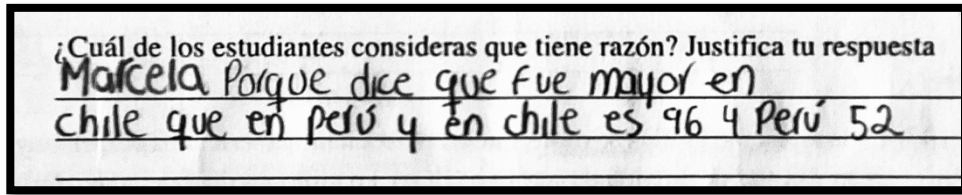 ¿Cuál de los estudiantes consideras que tiene razón? Justifica tu respuesta
Marcela Porque dice que fue mayor en
chile que en perú y en chile es 96 y Perú 52